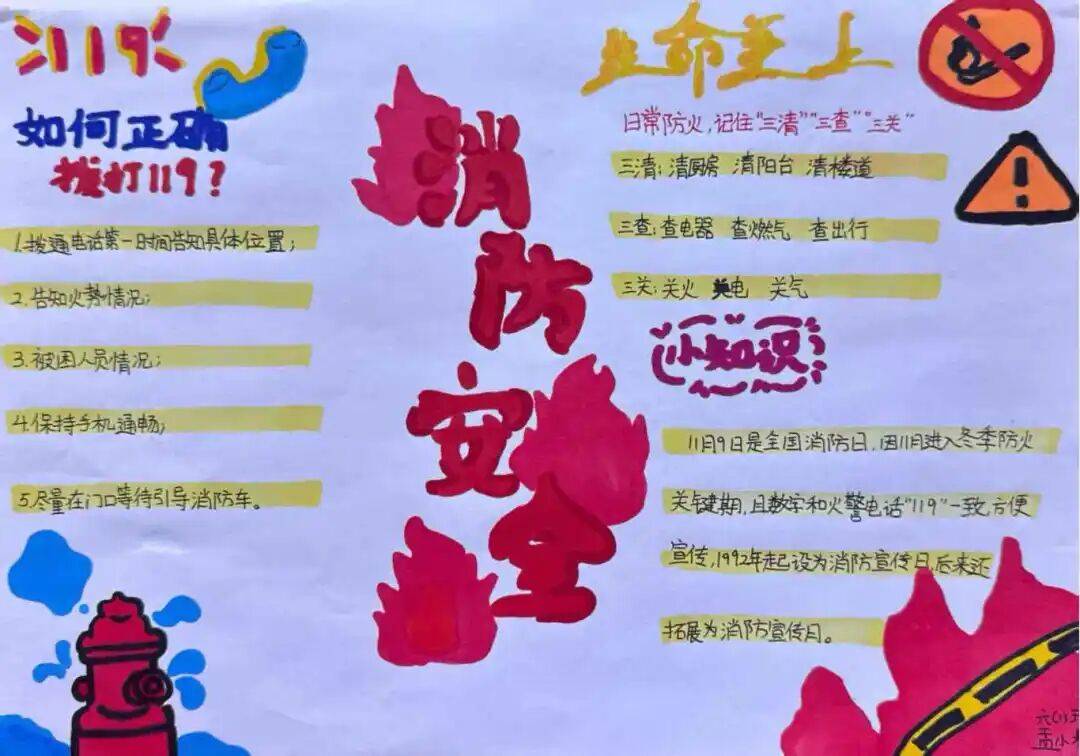 119
如何正确
拨打119?
1.拨通电话第一时间告知具体位置;
2.告知火势情况;
3.被困人员情况;
4.保持手机通畅;
5.尽量在门口等待引导消防车。
消防安全
生命至上
日常防火,记住"三清""三查""三关"
三清:清厨房 清阳台 清楼道
三查:查电器 查燃气 查出行
三关:关火 关电 关气
小知识
11月9日是全国消防日,因11月进入冬季防火
关键期,且数字和火警电话"119"一致,方便
宣传,1992年起设为消防宣传日,后来还
拓展为消防宣传月。
六(1)
孟小